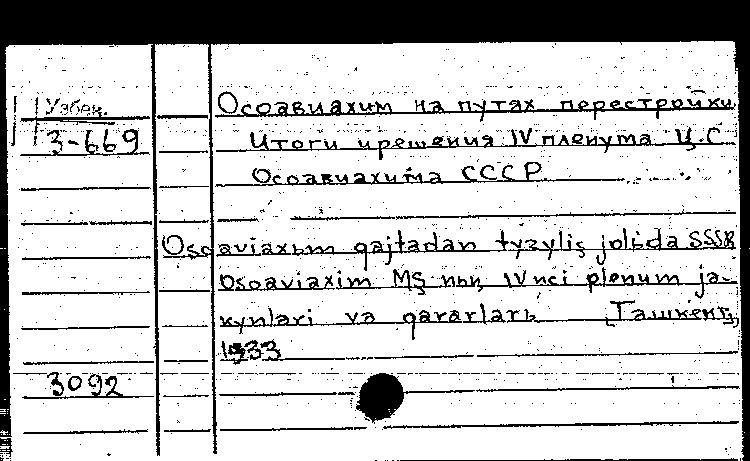 Узбек.
З-669
Осоавиахим на путях перестройки
Итоги и решения IV пленума Ц.С
Осоавиахима СССР
Osoaviaxьm qajtadan tyzyliş jolьda SSSR
Osoaviaxim MŞ nьꞑ IVnci plenum ja-
kynlari va qararlarь [Ташкент,
1933
3092